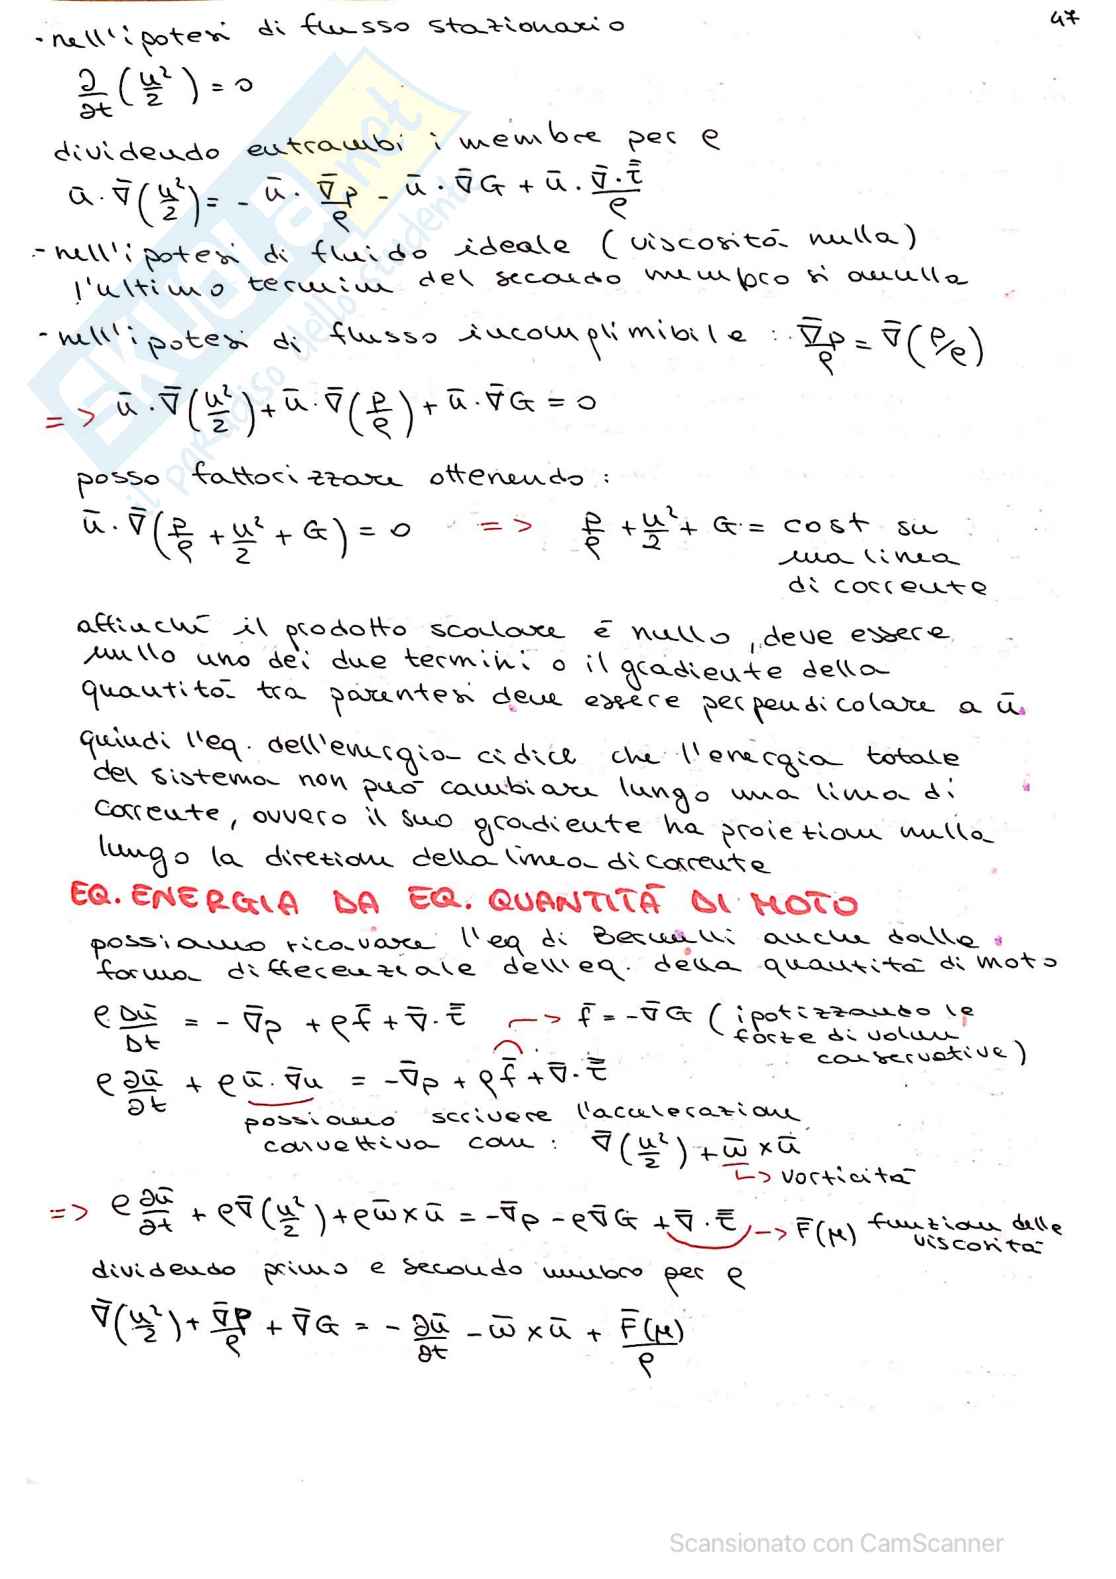 47
- nell'ipotesi di flusso stazionario
∂/∂t (u²/2) = 0
dividendo entrambi i membri per ρ
ū · ∇̄(u²/2) = - ū · ∇̄p/ρ - ū · ∇̄G + ū · ∇̄·τ̿/ρ
- nell'ipotesi di fluido ideale (viscosità nulla)
l'ultimo termine del secondo membro si annulla
- nell'ipotesi di flusso incomplimibile : ∇̄p/ρ = ∇̄(p/ρ)
=> ū · ∇̄(u²/2) + ū · ∇̄(p/ρ) + ū · ∇̄G = 0
posso fattorizzare ottenendo :
ū · ∇̄(p/ρ + u²/2 + G) = 0 => p/ρ + u²/2 + G = cost su
una linea
di corrente
affinché il prodotto scalare è nullo, deve essere
nullo uno dei due termini o il gradiente della
quantità tra parentesi deve essere perpendicolare a ū.
quindi l'eq. dell'energia ci dice che l'energia totale
del sistema non può cambiare lungo una linea di
corrente, ovvero il suo gradiente ha proiezione nulla
lungo la direzione della linea di corrente
EQ. ENERGIA DA EQ. QUANTITÀ DI MOTO
possiamo ricavare l'eq di Bernulli anche dalla
forma differenziale dell'eq. della quantità di moto
ρ Dū/Dt = - ∇̄p + ρf̄ + ∇̄·τ̿ -> f̄ = -∇̄G (ipotizzando le
forze di volume
conservative)
ρ ∂ū/∂t + ρū·∇̄u = -∇̄p + ρf̄ + ∇̄·τ̿
possiamo scrivere l'accelerazione
convettiva come : ∇̄(u²/2) + ω̄ x ū
-> vorticità
=> ρ ∂ū/∂t + ρ∇̄(u²/2) + ρω̄ x ū = -∇̄p - ρ∇̄G + ∇̄·τ̿ -> F̄(μ) funzione della
viscosità
dividendo primo e secondo membro per ρ
∇̄(u²/2) + ∇̄p/ρ + ∇̄G = - ∂ū/∂t - ω̄ x ū + F̄(μ)/ρ
SKUOLA.net
il paradiso dello studente
Scansionato con CamScanner